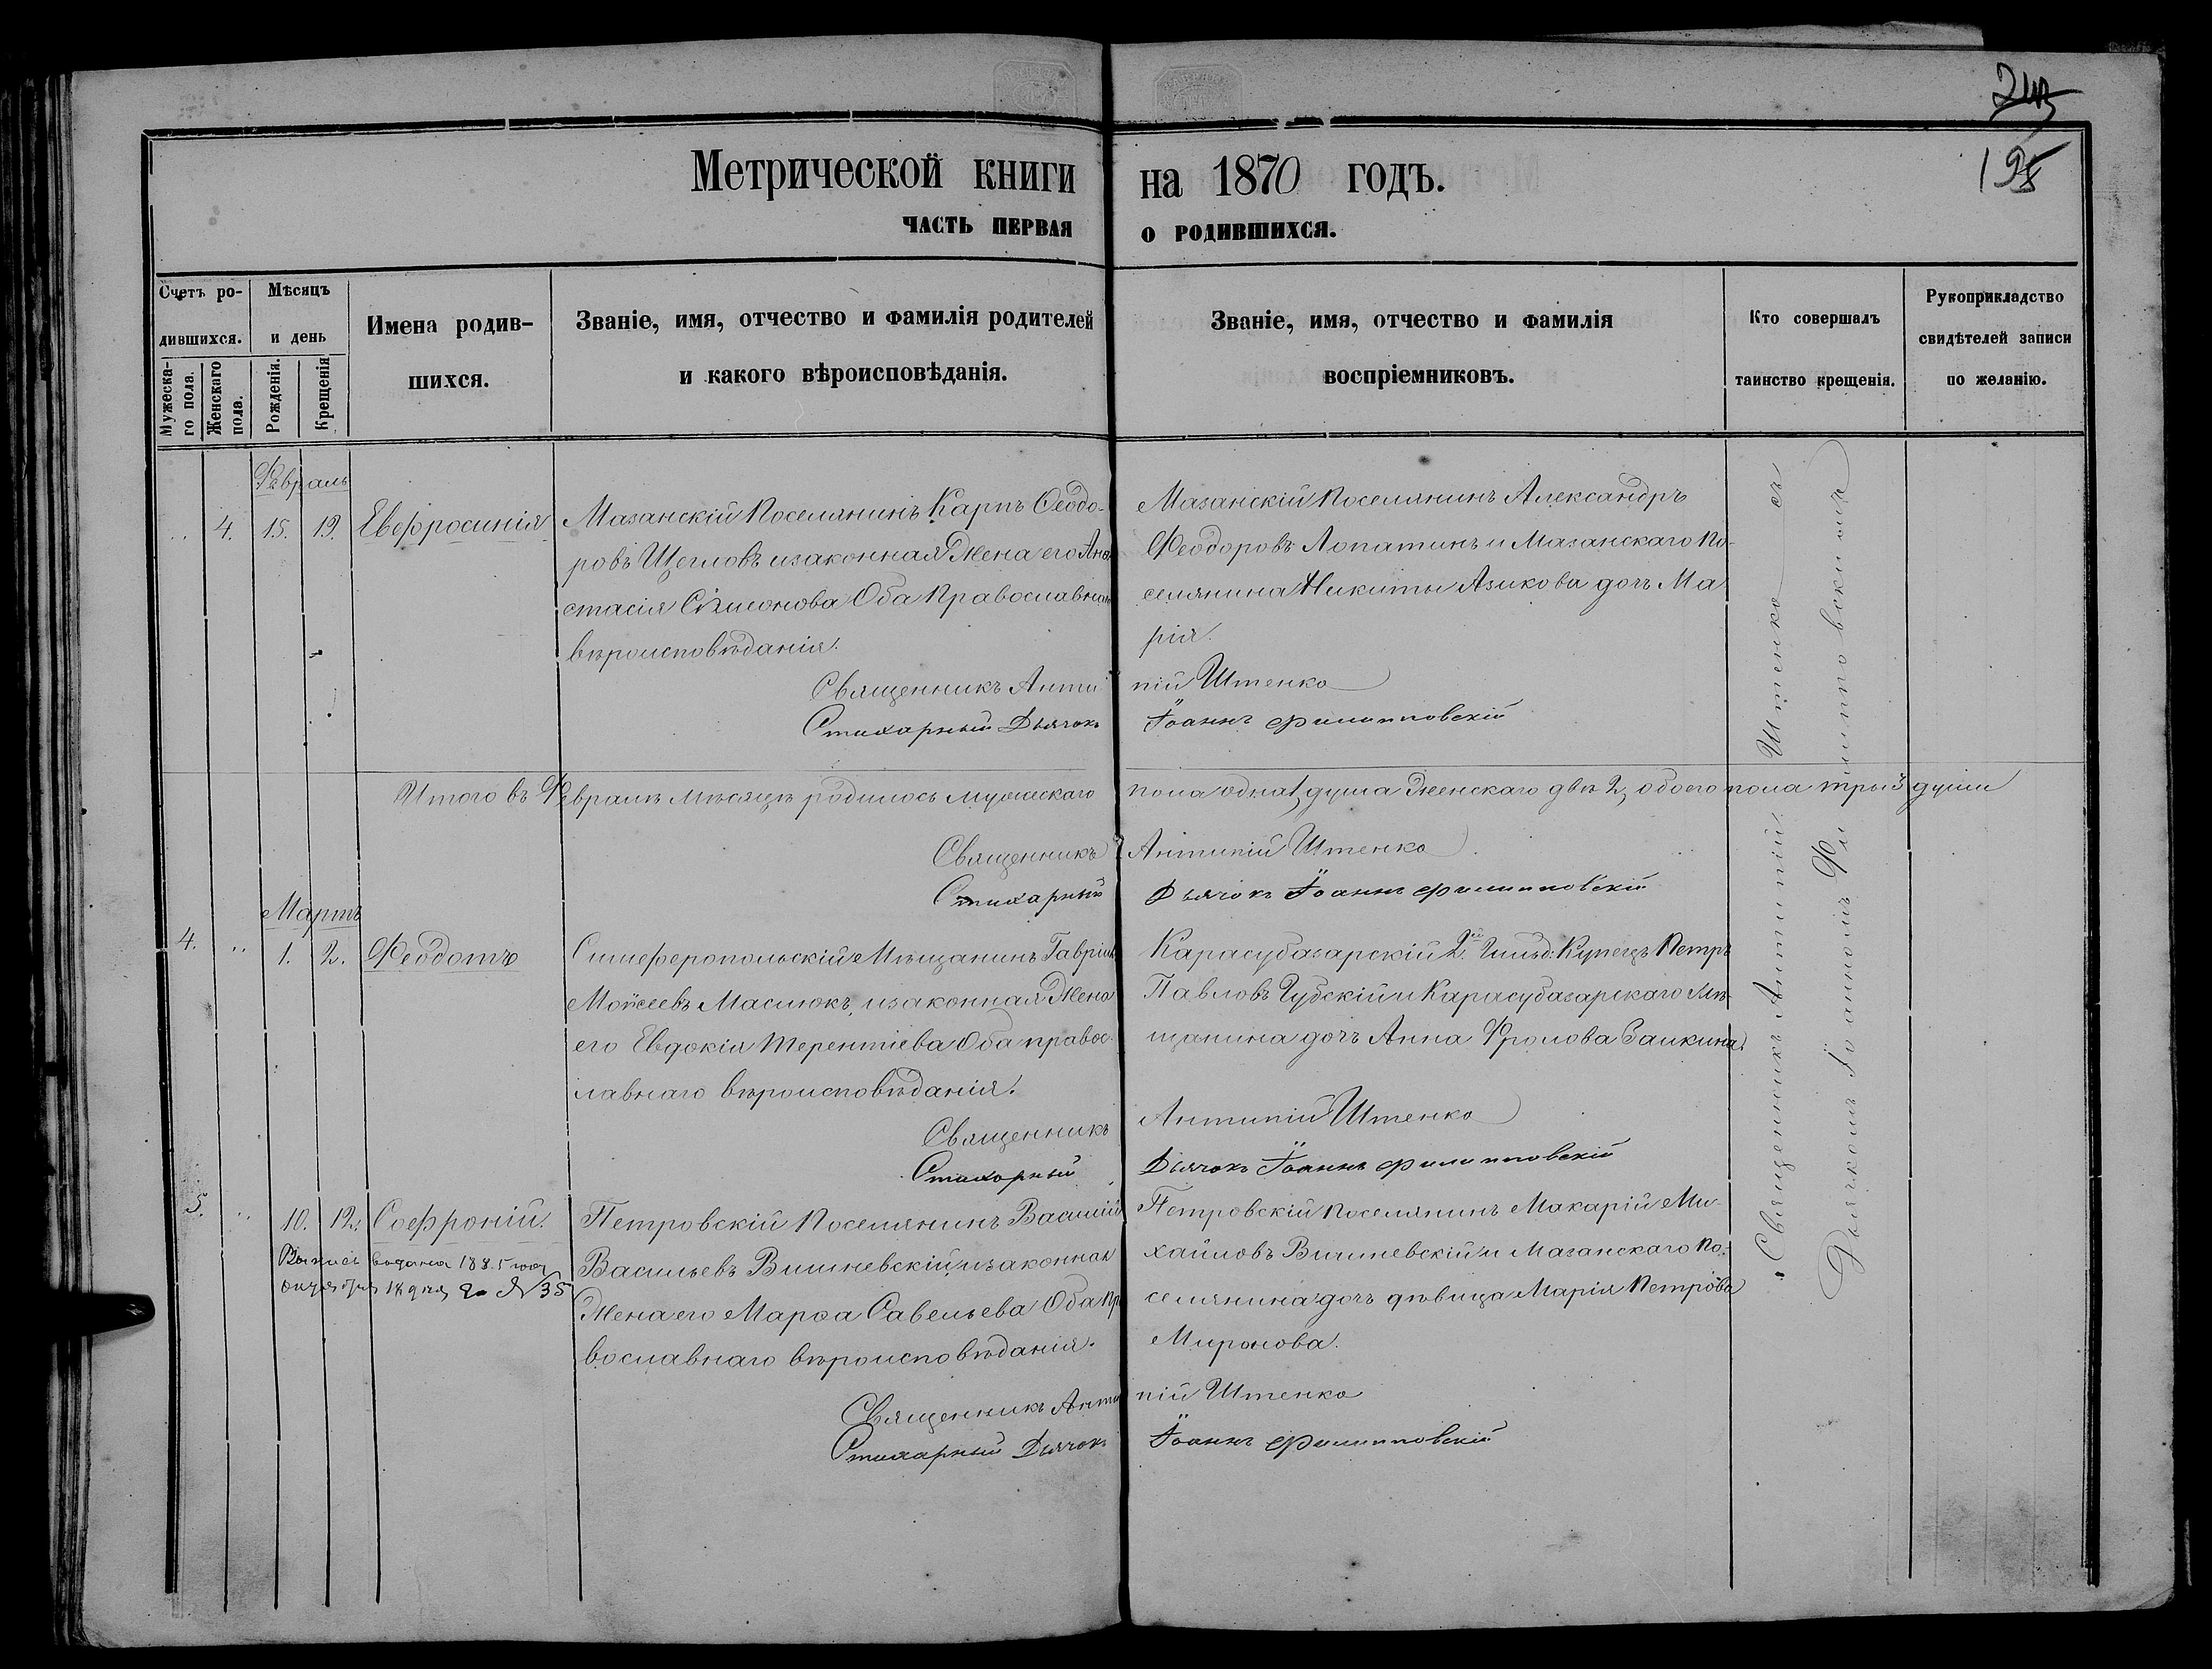 195
Метрической книги на 1870 годъ.
ЧАСТЬ ПЕРВАЯ О РОДИВШИХСЯ.
Счетъ ро-
дившихся.
Мужеска-
го пола.
Женскаго
пола.
Мѣсяцъ
и день
Рожденія.
Крещенія
Имена родив-
шихся.
Званіе, имя, отчество и фамилія родителей
и какого вѣроисповѣданія.
Званіе, имя, отчество и фамилія
воспріемниковъ.
Кто совершалъ
таинство крещенія.
Рукоприкладство
свидѣтелей записи
по желанію.
Февраль
4. 15. 19. Евфросинія
Мазанскій Поселянинъ Карпъ Ѳеодо-
ровъ Щегловъ и законная Жена его Ана
стасія Сѵмеонова Оба Православнаго
вѣроисповѣданія.
Мазанскій Поселянинъ Александръ
Феодоровъ Лопатинъ и Мазанскаго По-
селянина Никиты Азикова дочь Ма
рія.
Священникъ Антипій Штенко
Стихарный Дьячокъ Іоаннъ Филипповскій
Итого въ Февралѣ мѣсяцѣ родилось мужескаго пола одна 1, душа Женскаго двѣ 2, обоего пола три 3 души
Священникъ Антипій Штенко
Стихарный Дьячокъ Іоаннъ Филипповскій
Мартъ
4. 1. 2. Феодотъ
Симферопольскій Мѣщанинъ Гавріилъ
Моисеевъ Масюкъ, и законная Жена
его Евдокія Терентіева Оба правос-
лавнаго вѣроисповѣданія.
Карасубазарскій 2й Гильд: Купецъ Петръ
Павловъ Губскій и Карасубазарскаго Мѣ-
щанина дочь Анна Фролова Заикина.
Священникъ Антипій Штенко
Стихарный Дьячокъ Іоаннъ Филипповскій
5. 10. 12. Софроній.
Выпись выдана 1885 года
октября 18 дня за № 35
Петровскій Поселянинъ Василій
Васильевъ Вишневскій, и законная
Жена его Марѳа Савельева Оба Пр
вославнаго вѣроисповѣданія.
Петровскій Поселянинъ Макарій Ми-
хайловъ Вишневскій и Мазанскаго По-
селянина дочь дѣвица Марія Петрова
Миронова.
Священникъ Антипій Штенко
Стихарный Дьячокъ Іоаннъ Филипповскій
Священникъ Антипій Штенко съ
Дьячкомъ Іоанномъ Филипповскимъ